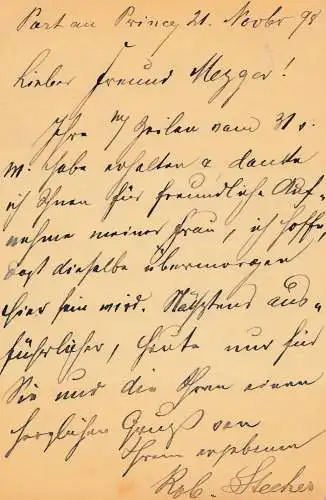 Port au Prince, 21. Novbr 98
Lieber Freund Mezger!
Ihre Zeilen vom 31 v.
M. habe erhalten & danke
ich Ihnen für freundliche Auf-
nahme meiner Frau, ich hoffe,
daß dieselbe übermorgen
hier sein wird. Nächstens aus-
führlicher, heute nur für
Sie und die Ihren einen
herzlichen Gruß von
Ihrem ergebenen
Rob. Stecher